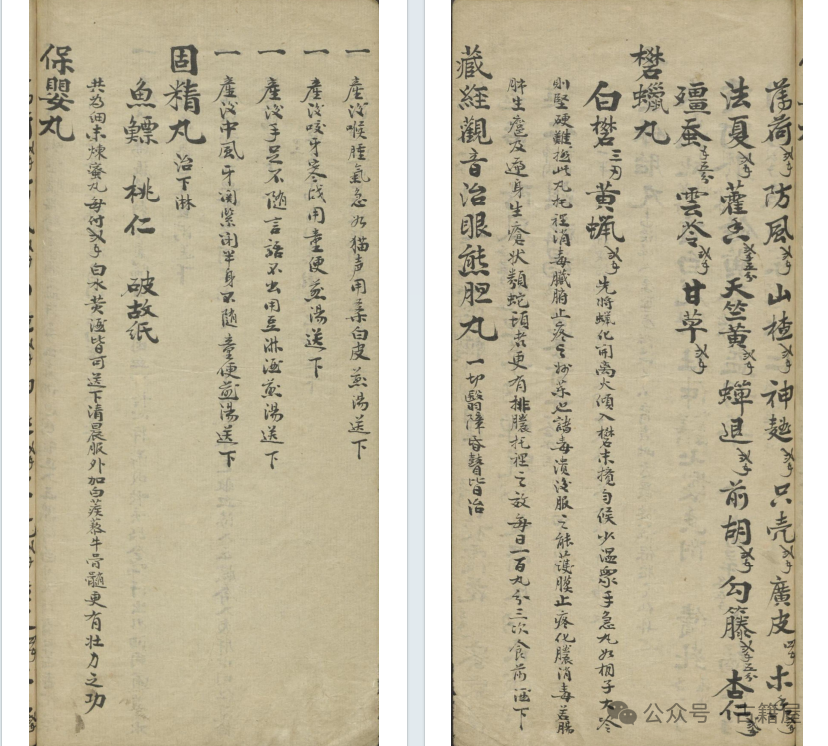 薄荷 防風 山楂 神麯 只壳 廣皮 木
法夏 藿香 天竺黄 蟬退 前胡 勾籐 杏仁
殭蚕 雲苓 甘草
礬蠟丸
白礬 三刃 黄蝋 先將蠟化開离火傾入礬末攪匀候少温衆手急丸如桐子大冷
則堅硬難 此丸托裡消毒臟腑止疼 諸毒潰後服之能護膜止疼化膿消毒若腸
肺生癰及遍身生瘡状類蛇頭者更有排膿托裡之效每日一百丸分三次食前酒下
藏經觀音治眼熊胆丸 一切翳障昏瞽皆治
一 產後喉腫氣急如猫声用桑白皮煎湯送下
一 產後咬牙寒战用童便煎湯送下
一 產後手足不随言語不出用豆淋酒煎湯送下
一 產後中風牙関緊閉半身不随童便煎湯送下
固精丸 治下淋
魚鰾 桃仁 破故紙
共為细末煉蜜丸每付 白水黄酒皆可送下清晨服外加白蒺藜牛骨髓更有壮力之功
保嬰丸
公众号 古籍屋